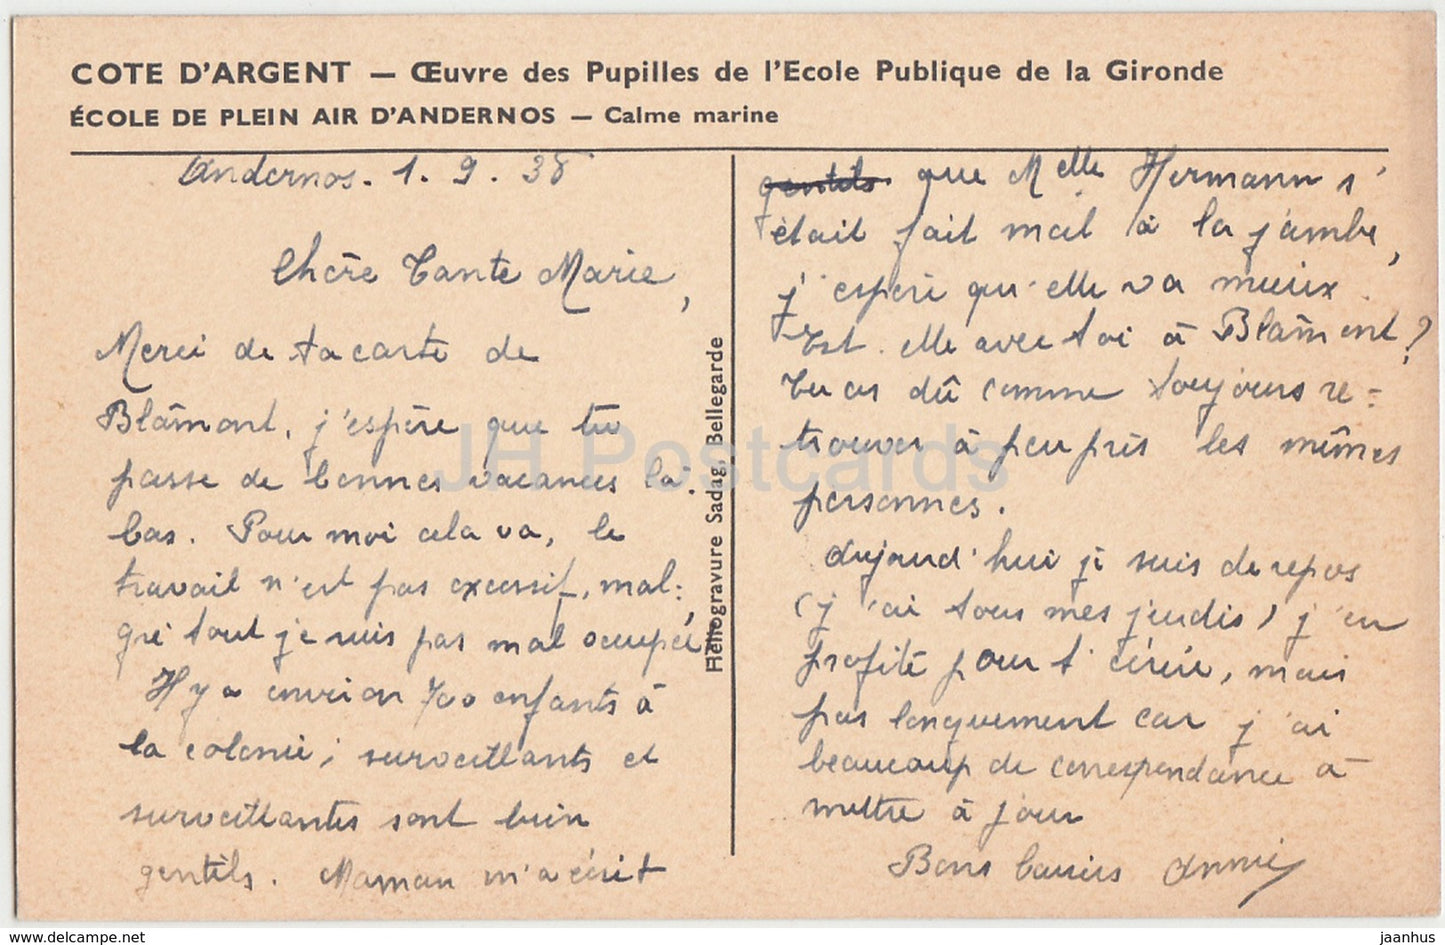 COTE D'ARGENT — Œuvre des Pupilles de l'Ecole Publique de la Gironde
ÉCOLE DE PLEIN AIR D'ANDERNOS — Calme marine
Andernos. 1. 9. 38
Chère Tante Marie,
Merci de ta carte de
Blâmont, j'espère que tu
passe de bonnes vacances là.
bas. Pour moi cela va, le
travail n'est pas excessif, mal-
gré tout je suis pas mal occupée
Il y a environ 700 enfants à
la colonie; surveillants et
surveillantes sont bien
gentils. Maman m'a écrit
Héliogravure Sadag, Bellegarde
gentils. que Melle Hermann s'
était fait mal à la jambe,
j'espère qu'elle va mieux.
Est-elle avec toi à Blâmont?
Tu as dû comme toujours re-
trouver à peu près les mêmes
personnes.
Aujourd'hui je suis de repos
(j'ai tous mes jeudis) j'en
profite pour t'écrire, mais
pas longuement car j'ai
beaucoup de correspondance à
mettre à jour
Bons baisers Annie
JH Postcards
www.delcampe.net
jaanhus